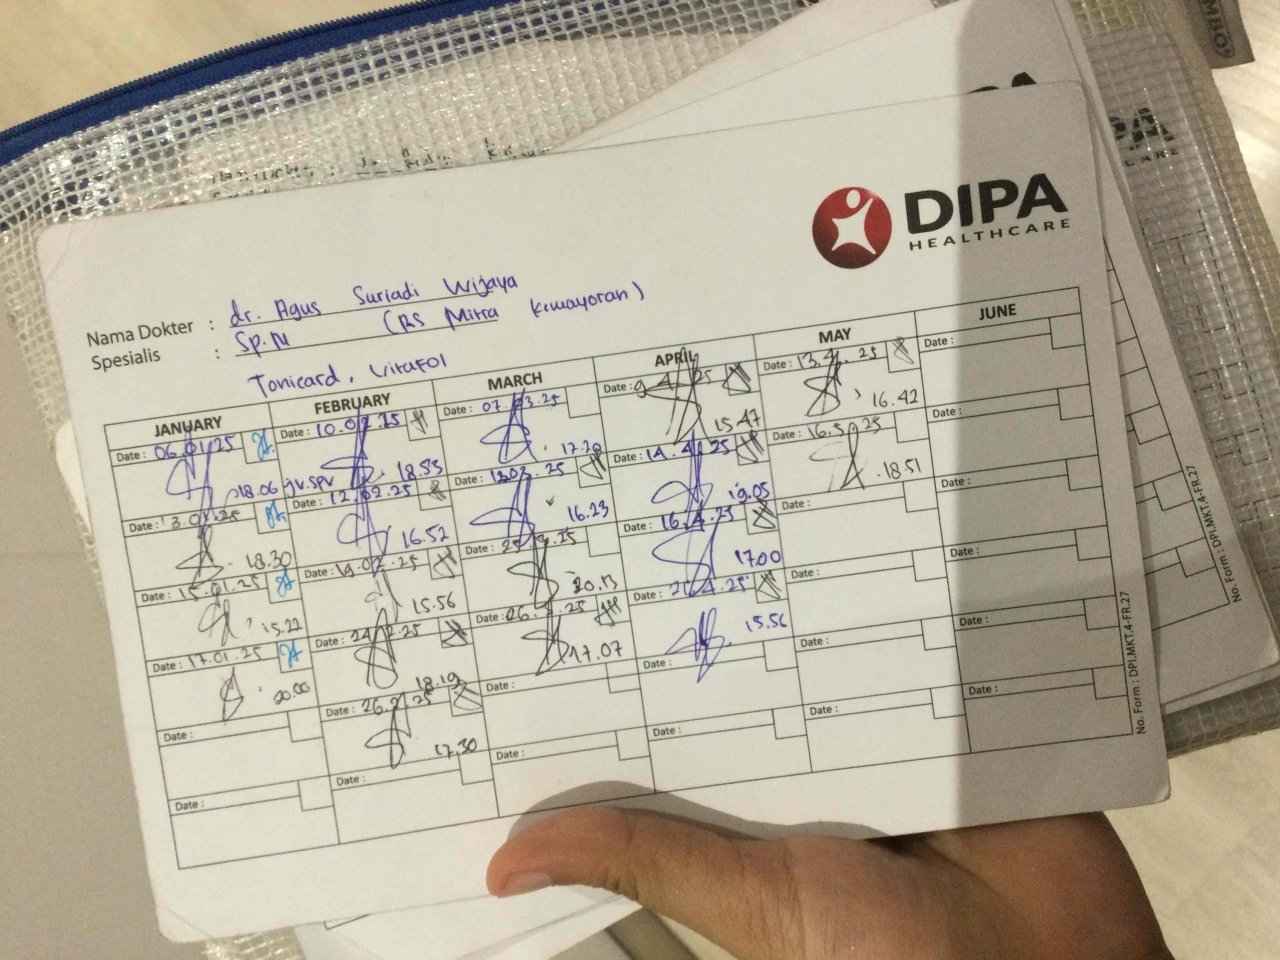 DIPA
HEALTHCARE
Nama Dokter : dr. Agus Suriadi Wijaya
Spesialis : Sp.N (RS Mitra Kemayoran)
Tonicard, Vitafol
JANUARY FEBRUARY MARCH APRIL MAY JUNE
Date : 06.01.25 Date : 10.02.25 Date : 07.03.25 Date : 9.4.25 Date : 13.5.25 Date :
18.06 jv.spv 18.53 17.20 15.47 16.42
Date : 13.01.25 Date : 12.02.25 Date : 12.03.25 Date : 14.4.25 Date : 16.5.25 Date :
18.30 16.52 16.23 19.05 18.51
Date : 15.01.25 Date : 19.02.25 Date : 25.3.25 Date : 16.4.25 Date : Date :
15.22 15.56 20.13 17.00
Date : 17.01.25 Date : 24.2.25 Date : 26.3.25 Date : 21.4.25 Date : Date :
20.00 18.19 17.07 15.56
Date : Date : 26.2.25 Date : Date : Date : Date :
17.30
Date : Date : Date : Date : Date : Date :
No. Form : DPI.MKT.4-FR.27
No. Form : DPI.MKT.4-FR.27